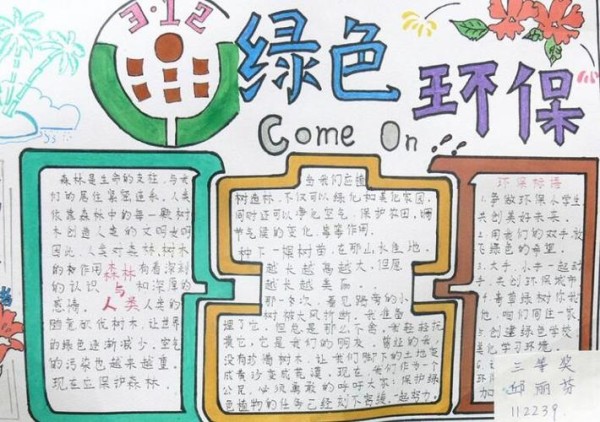 3·12
绿色
环保
Come On !!!
森林是生命的支柱，与人
们的居住紧密连系。人类
依靠森林中的每一颗树
木创造人类的文明史明
因此，人类对森林、树木
的和作用 有着深刻
的认识 和深厚的
感情。 人类的
森林
与
人类
脑意砍伐树木，让世界
的绿色逐渐减少，空气
的污染也越来越重。
现在应保护森林
当我们在植
树造林，不仅可以绿化和美化家园，
同时还可以净化空气、保护农田，调
节气候的变化，等等作用。
种下一棵树苗，在那山长在地，
越长越高越大，但愿
越长越美丽。
那一次，看见路旁的小
树被大风折断，我准备
埋了它，但总是那么不舍，我轻轻抚
黄它，它是我们的朋友，曾经的我，
没有珍惜树木，让我们脚下的土地变
成黄沙变成荒漠，现在，我们作为一个
公民，必须勇敢的呼吁大家：保护绿
色植物的任务已经刻不容缓，一起努力。
环保标语
1.争做环保小学生
共创美好未来。
2.用我们的双手放
飞绿色的希望。
3.大手，小手一起动
手，共创环保城市
4.看草绿树你我
他，咱们同住一家
5.创建绿色学校
美化学习环境。
三等奖
邱丽芬
112239.